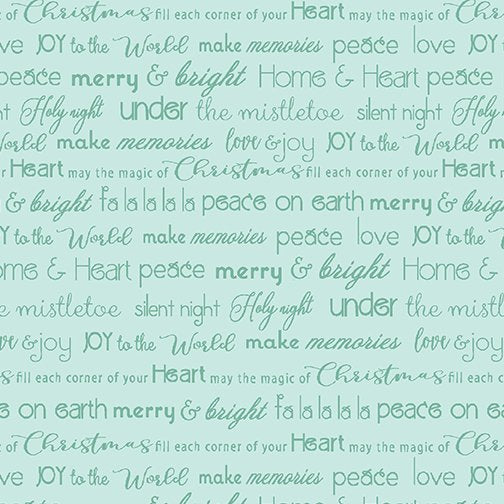 of Christmas fill each corner of your Heart may the magic of Christmas
ve JOY to the World make memories peace love JOY
peace merry & bright Home & Heart peace
ht Holy night under the mistletoe silent night Holy
World make memories love & joy JOY to the World m
r Heart may the magic of Christmas fill each corner of your Heart m
& bright fa la la la la peace on earth merry & brig
Y to the World make memories peace love JOY to
ome & Heart peace merry & bright Home &
e mistletoe silent night Holy night under the mist
ve & joy JOY to the World make memories love & joy
s fill each corner of your Heart may the magic of Christmas fill each c
e on earth merry & bright fa la la la la peace on ea
of Christmas fill each corner of your Heart may the magic of Ch
ve JOY to the World make memories peace love JOY
peace merry & bright Home & Heart peace